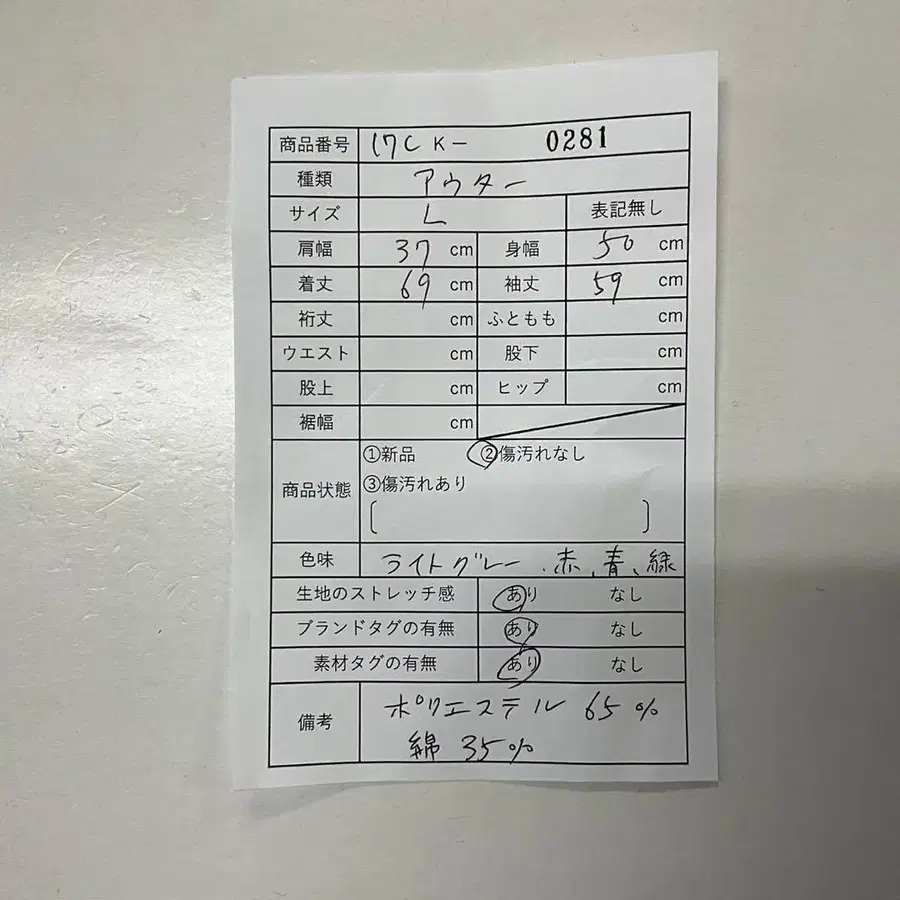 商品番号 17C K- 0281
種類 アウター
サイズ L 表記無し
肩幅 37 cm 身幅 50 cm
着丈 69 cm 袖丈 59 cm
裄丈 cm ふともも cm
ウエスト cm 股下 cm
股上 cm ヒップ cm
裾幅 cm
①新品 ②傷汚れなし
商品状態 ③傷汚れあり
[ ]
色味 ライトグレー、赤、青、緑
生地のストレッチ感 あり なし
ブランドタグの有無 あり なし
素材タグの有無 あり なし
備考 ポリエステル 65%
綿 35%